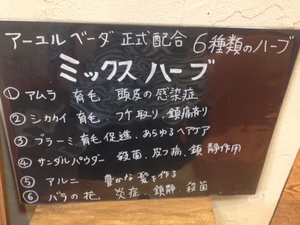 アーユルベーダ 正式配合 6種類のハーブ
ミックスハーブ
① アムラ 育毛、頭皮の感染症
② シカカイ 育毛、フケ取り、鎮痛剤
③ ブラーミ 育毛促進、あらゆるヘアケア
④ サンダルパウダー 殺菌、皮フ病、鎮静作用
⑤ アルニ 豊かな髪を作る
⑥ バラの花 炎症、鎮静、殺菌